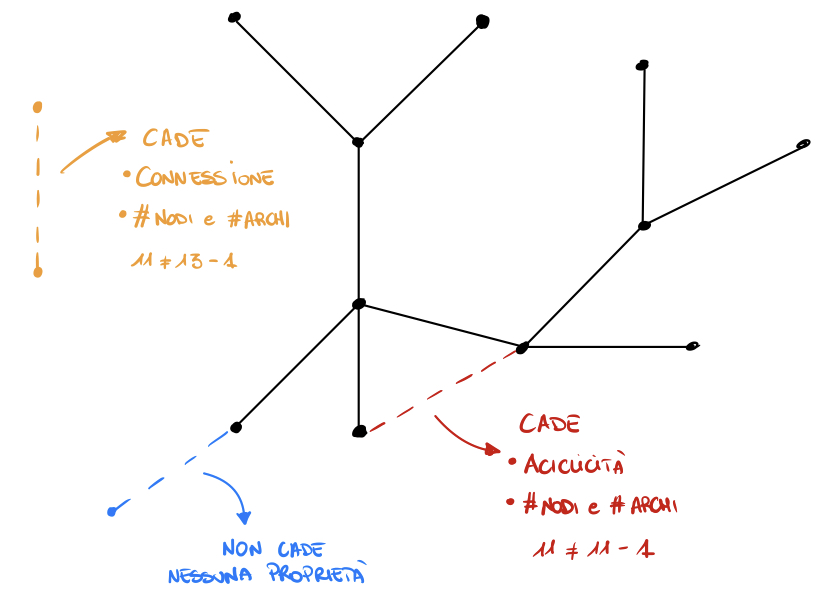 CADE
• CONNESSIONE
• #NODI e #ARCHI
11 ≠ 13 - 1
CADE
• ACICLICITÀ
• #NODI e #ARCHI
11 ≠ 11 - 1
NON CADE
NESSUNA PROPRIETÀ